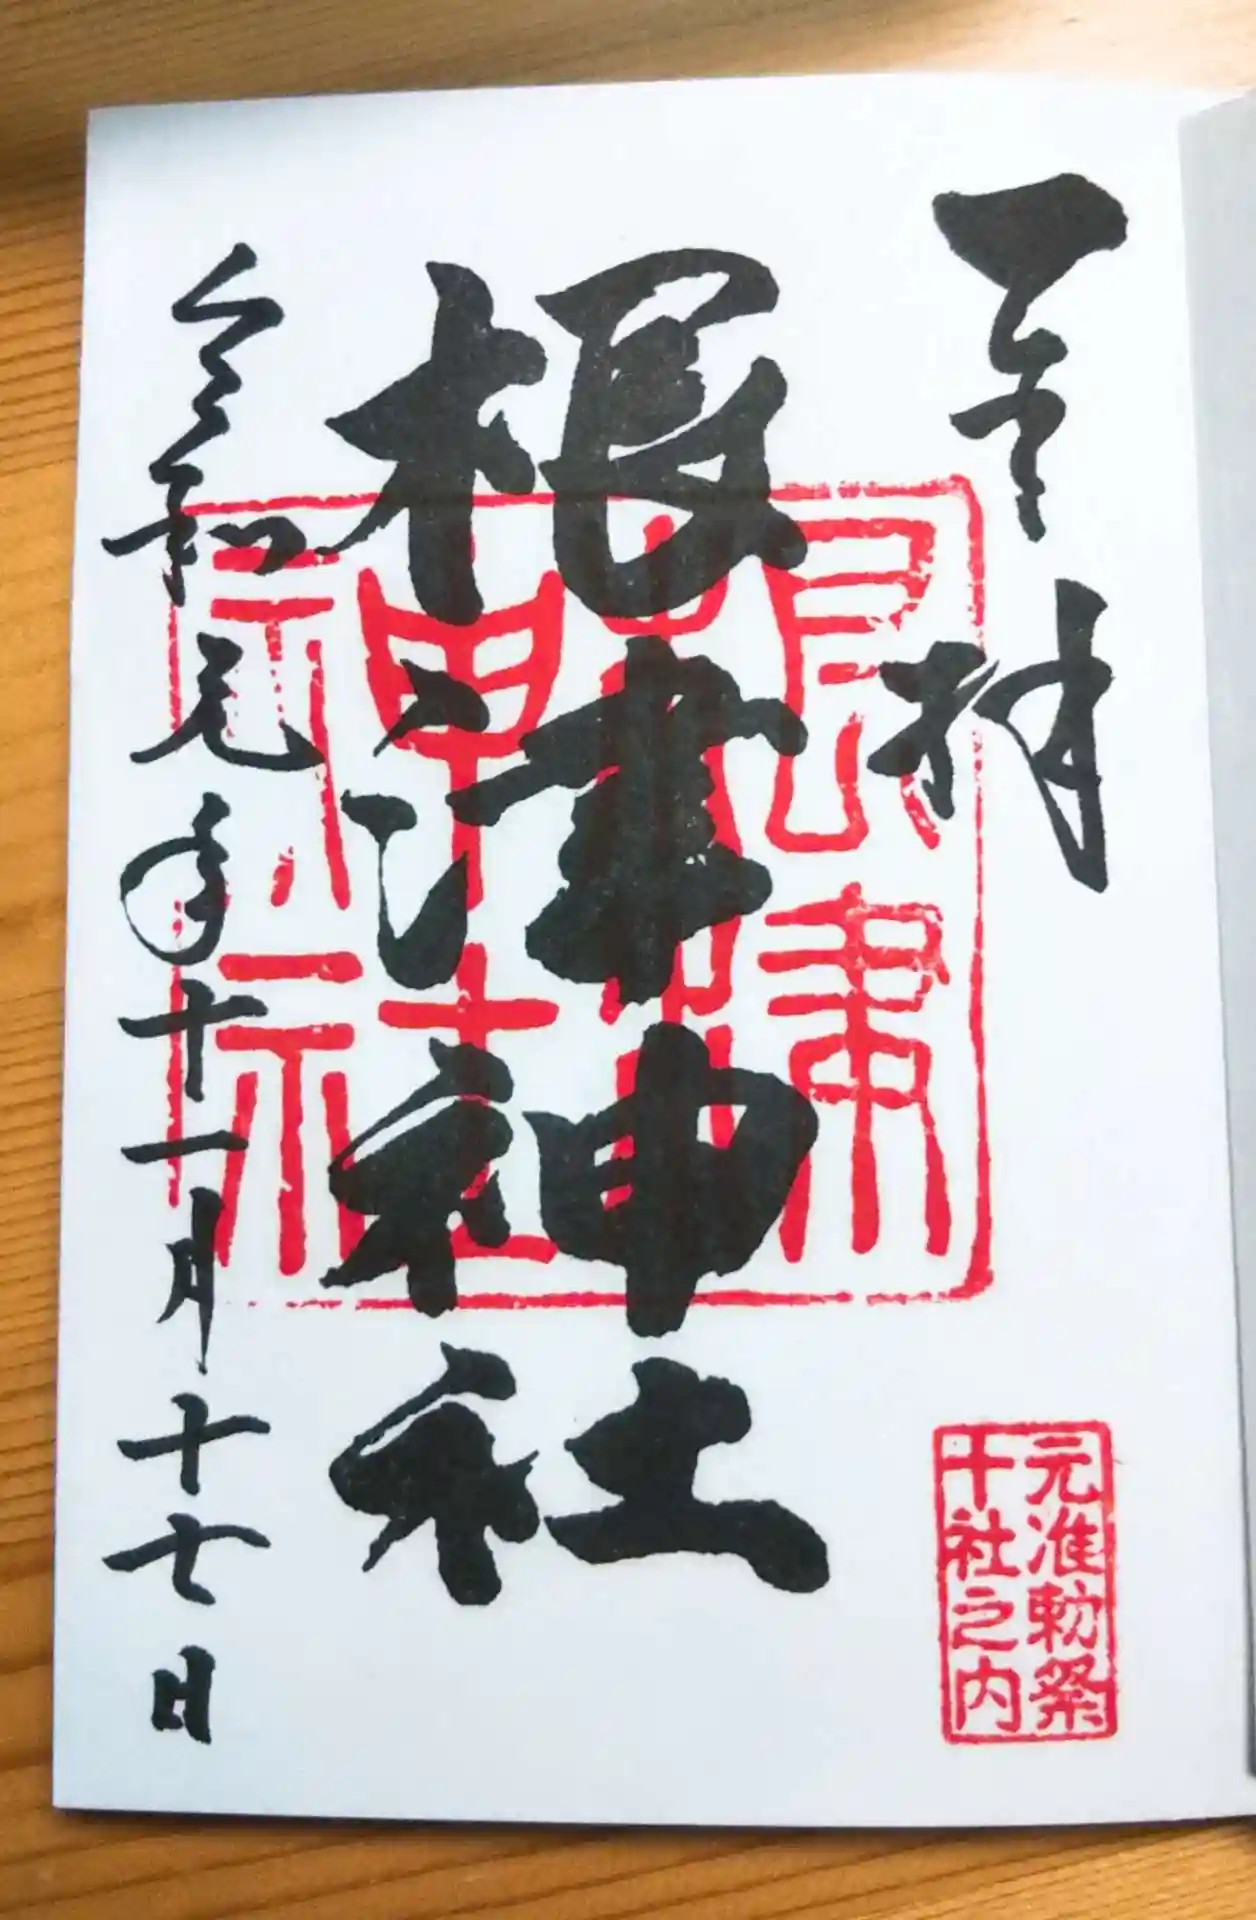 奉拝
根津神社
令和元年十一月十七日
元准勅祭
十社之内